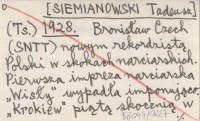 [SIEMIANOWSKI Tadeusz]
(Ts.) 1928. Bronisław Czech
(SNTT) nowym rekordzistą
Polski w skokach narciarskich.
Pierwsza impreza narciarska
„Wisły” wypadła imponująco.
„Krokiew” piątą skocznią w